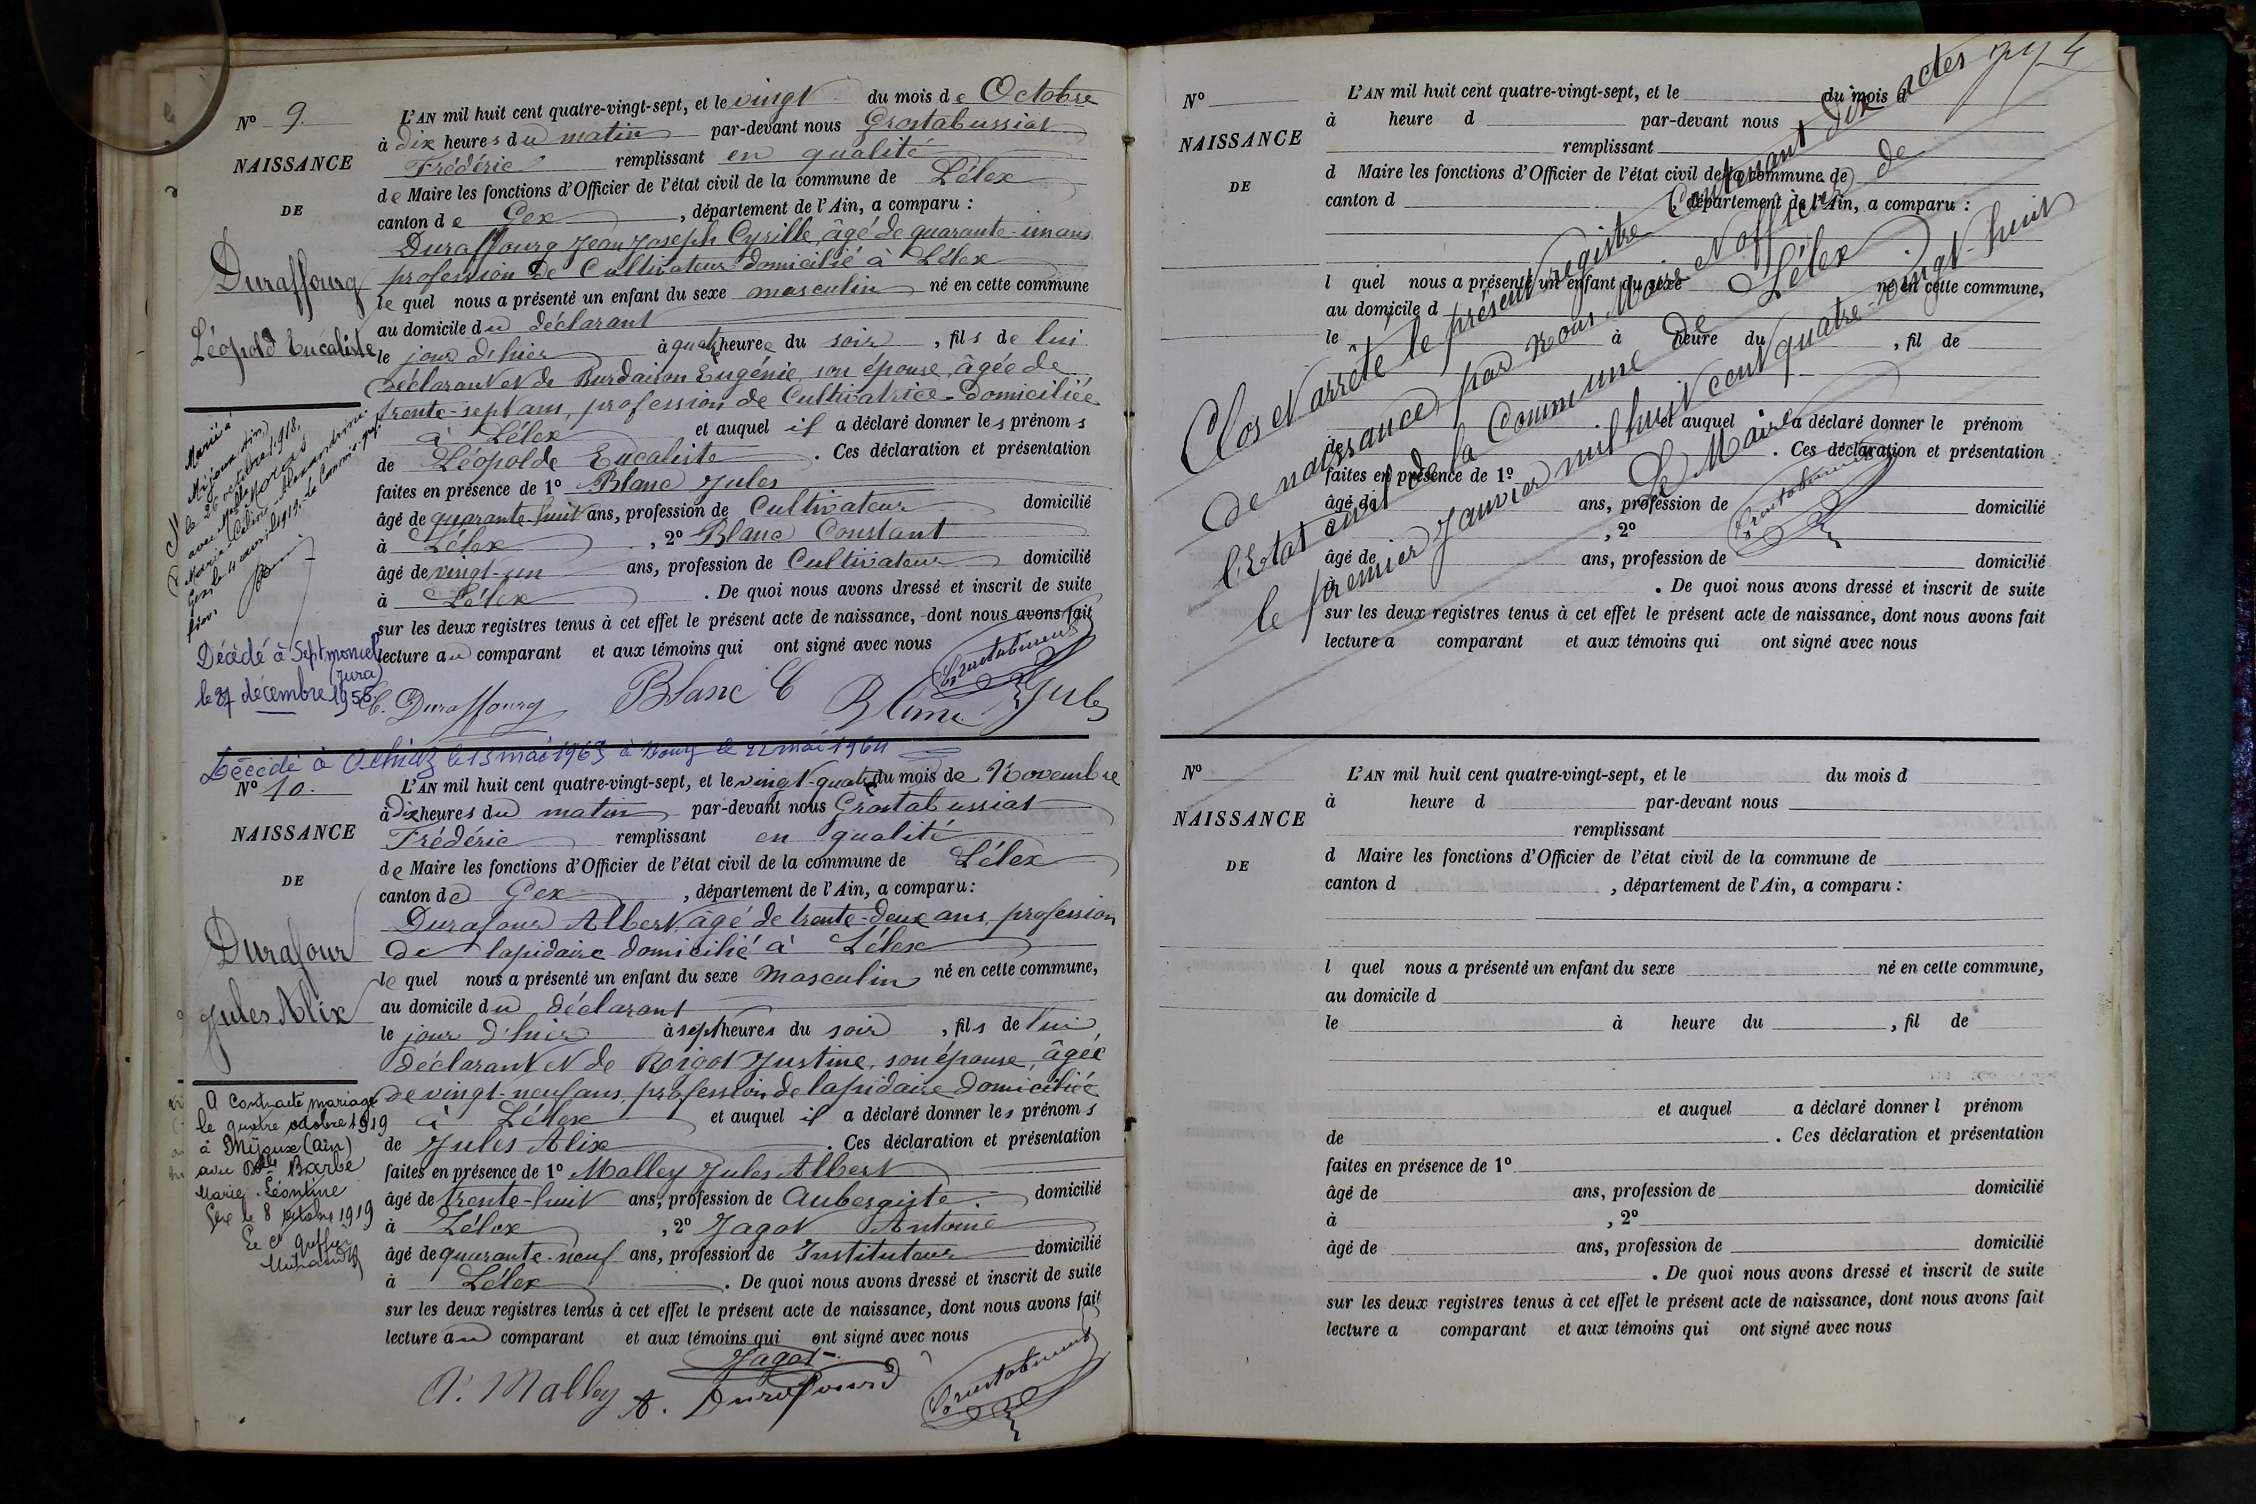 N° 9.
NAISSANCE
DE
Duraffourg
Léopold Eucaliste
Marié à
Mijoux (Ain)
le 26 octobre 1918,
avec Melle
Marie Céline Alexandrine
Gex, le 11 avril 1919. Le Commis-greffier
Décédé à Septmoncel
(Jura)
le 27 décembre 1958
L'AN mil huit cent quatre-vingt-sept, et le vingt du mois de Octobre
à dix heures du matin par-devant nous Grostabussiat
Frédéric remplissant en qualité
de Maire les fonctions d'Officier de l'état civil de la commune de Lélex
canton de Gex, département de l'Ain, a comparu :
Duraffourg Jean Joseph Cyrille, âgé de quarante-un ans
profession de Cultivateur domicilié à Lélex
lequel nous a présenté un enfant du sexe masculin né en cette commune
au domicile du déclarant
le jour d'hier à quatre heures du soir, fils de lui
déclarant et de Burdairon Eugénie, son épouse, âgée de
trente-sept ans, profession de Cultivatrice domiciliée
à Lélex et auquel il a déclaré donner les prénoms
de Léopolde Eucaliste. Ces déclaration et présentation
faites en présence de 1° Blanc Jules
âgé de quarante-huit ans, profession de Cultivateur domicilié
à Lélex, 2° Blanc Constant
âgé de vingt-un ans, profession de Cultivateur domicilié
à Lélex. De quoi nous avons dressé et inscrit de suite
sur les deux registres tenus à cet effet le présent acte de naissance, dont nous avons fait
lecture au comparant et aux témoins qui ont signé avec nous
C. Duraffourg Blanc C Blanc Jules Grostabussiat
Décédé à Ochiaz le 15 mai 1963 à Bourg le 22 mai 1964
N° 10.
NAISSANCE
DE
Durafour
Jules Alix
A contracté mariage
le quatre octobre 1919
à Mijoux (Ain)
avec Delle Barbe
Marie Léontine
Gex le 8 octobre 1919
Le Cis Greffier
L'AN mil huit cent quatre-vingt-sept, et le vingt-quatre du mois de Novembre
à dix heures du matin par-devant nous Grostabussiat
Frédéric remplissant en qualité
de Maire les fonctions d'Officier de l'état civil de la commune de Lélex
canton de Gex, département de l'Ain, a comparu :
Durafour Albert, âgé de trente-deux ans, profession
de lapidaire domicilié à Lélex
lequel nous a présenté un enfant du sexe Masculin né en cette commune,
au domicile du déclarant
le jour d'hier à sept heures du soir, fils de lui
déclarant et de Roigot Justine, son épouse, âgée
de vingt-neuf ans, profession de lapidaire domiciliée
à Lélex et auquel il a déclaré donner les prénoms
de Jules Alix. Ces déclaration et présentation
faites en présence de 1° Malley Jules Albert
âgé de trente-huit ans, profession de Aubergiste domicilié
à Lélex, 2° Jagot Antoine
âgé de quarante-neuf ans, profession de Instituteur domicilié
à Lélex. De quoi nous avons dressé et inscrit de suite
sur les deux registres tenus à cet effet le présent acte de naissance, dont nous avons fait
lecture au comparant et aux témoins qui ont signé avec nous
Jagot
A. Malley A. Durafour Grostabussiat
4
N°
NAISSANCE
DE
L'AN mil huit cent quatre-vingt-sept, et le du mois d
à heure d par-devant nous
remplissant
d Maire les fonctions d'Officier de l'état civil de la commune de
canton d , département de l'Ain, a comparu :
l quel nous a présenté un enfant du sexe né en cette commune,
au domicile d
le à heure du , fil de
et auquel a déclaré donner le prénom
de . Ces déclaration et présentation
faites en présence de 1°
âgé de ans, profession de domicilié
à , 2°
âgé de ans, profession de domicilié
à . De quoi nous avons dressé et inscrit de suite
sur les deux registres tenus à cet effet le présent acte de naissance, dont nous avons fait
lecture a comparant et aux témoins qui ont signé avec nous
Clos et arrêté le présent registre contenant dix actes
de naissance, par Nous Maire et officier de
l'Etat civil de la Commune de Lélex
le premier Janvier mil huit cent quatre-vingt-huit
Le Maire
Grostabussiat
N°
NAISSANCE
DE
L'AN mil huit cent quatre-vingt-sept, et le du mois d
à heure d par-devant nous
remplissant
d Maire les fonctions d'Officier de l'état civil de la commune de
canton d , département de l'Ain, a comparu :
l quel nous a présenté un enfant du sexe né en cette commune,
au domicile d
le à heure du , fil de
et auquel a déclaré donner l prénom
de . Ces déclaration et présentation
faites en présence de 1°
âgé de ans, profession de domicilié
à , 2°
âgé de ans, profession de domicilié
. De quoi nous avons dressé et inscrit de suite
sur les deux registres tenus à cet effet le présent acte de naissance, dont nous avons fait
lecture a comparant et aux témoins qui ont signé avec nous